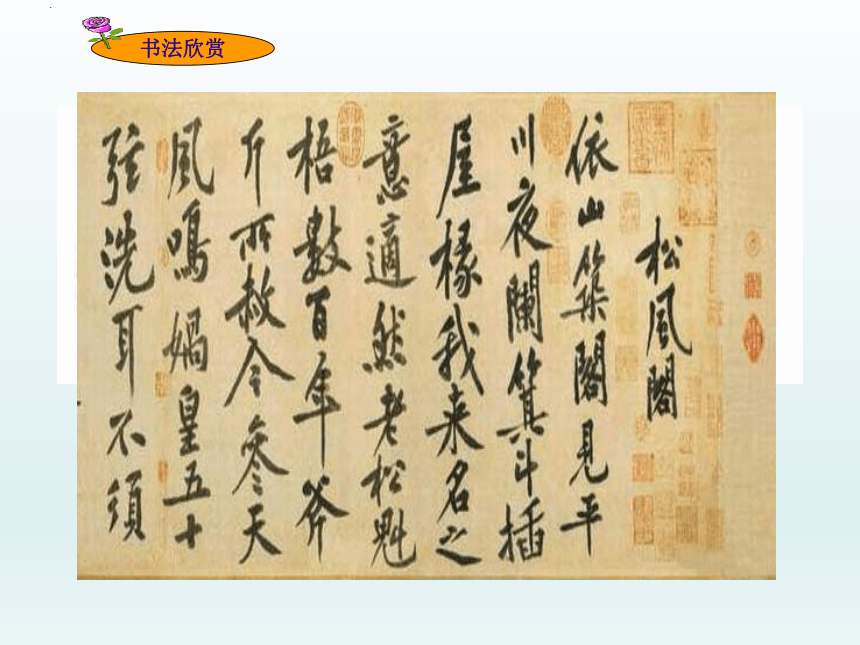 书法欣赏
松風閣
依山築閣見平
川夜闌箕斗插
屋椽我来名之
意適然老松魁
梧數百年斧
斤所赦今參天
風鳴媧皇五十
弦洗耳不須